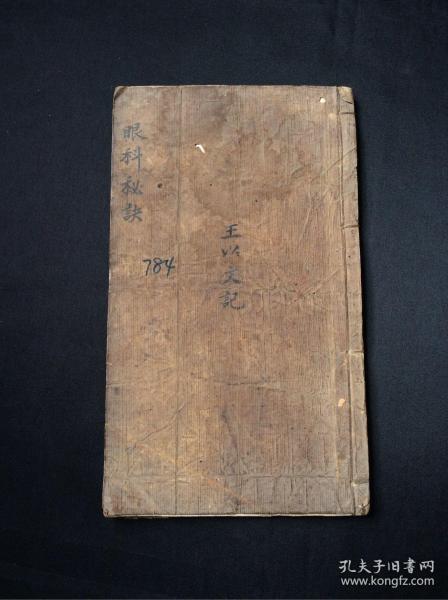 眼科秘訣
784
王以文記
孔夫子旧书网
www.kongfz.com